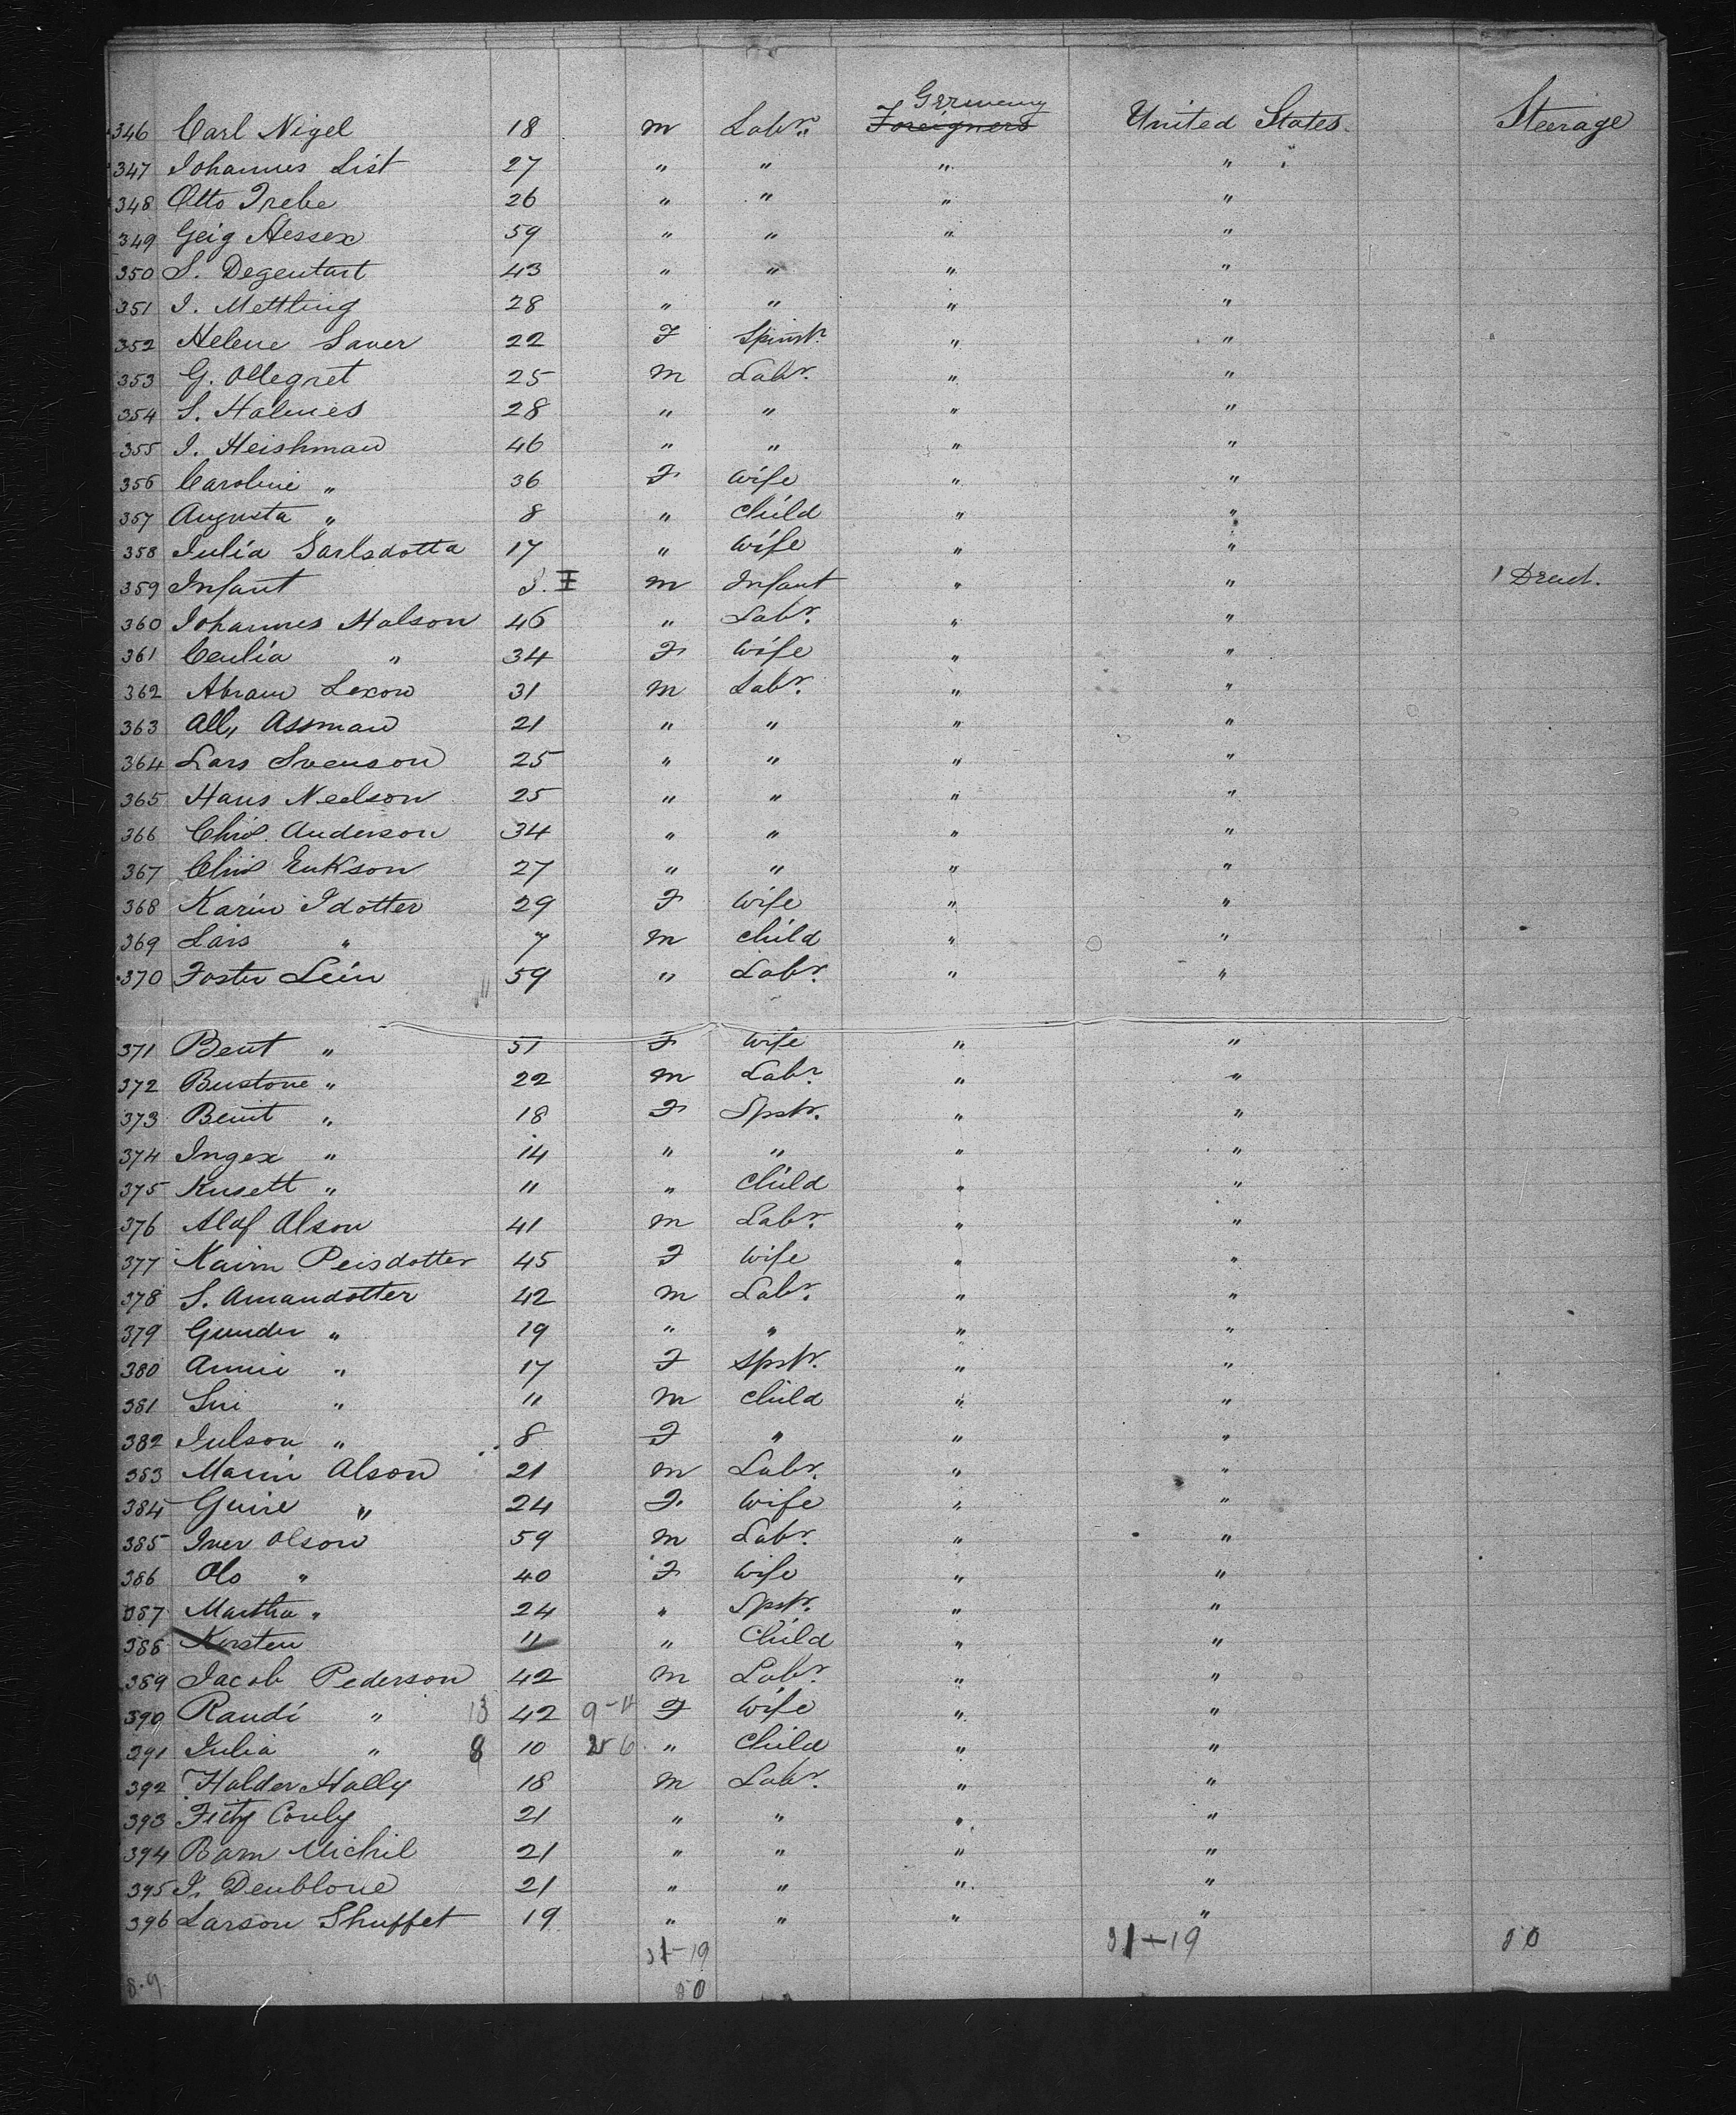 346 Carl Nigel 18 m Labr. Germany Foreigners United States Steerage
347 Johannes List 27 " " " "
348 Otto Trebe 26 " " " "
349 Geig Hessex 59 " " " "
350 S. Degentart 43 " " " "
351 I. Mettling 28 " " " "
352 Helene Saver 22 F Spinstr. " "
353 G. Ollegret 25 m Labr. " "
354 S. Halmes 28 " " " "
355 I. Heishman 46 " " " "
356 Caroline " 36 F Wife " "
357 Augusta " 8 " Child " "
358 Julia Sarlsdotta 17 " Wife " "
359 Infant m Infant " " 1 Dead.
360 Johannes Halson 46 " Labr. " "
361 Cecilia " 34 F Wife " "
362 Abram Lexon 31 m Labr. " "
363 All, Assman 21 " " " "
364 Lars Svenson 25 " " " "
365 Hans Neelson 25 " " " "
366 Chrs. Anderson 34 " " " "
367 Chrs Erikson 27 " " " "
368 Karin Idotter 29 F Wife " "
369 Lars " 7 m Child " "
370 Foster Lein 59 " Labr. " "
371 Bent " 51 F Wife " "
372 Bustone " 22 m Labr. " "
373 Beint " 18 F Spstr. " "
374 Ingex " 14 " " " "
375 Knsett " 11 " Child " "
376 Alof Olson 41 m Labr. " "
377 Kairn Peisdotter 45 F Wife " "
378 S. Amandotter 42 m Labr. " "
379 Gunder " 19 " " " "
380 Annie " 17 F Spstr. " "
381 Siri " 11 m Child " "
382 Julson " 8 F " " "
383 Marin Olson 21 m Labr. " "
384 Guire " 24 F. Wife " "
385 Iver Olson 59 m Labr. " "
386 Olo " 40 F Wife " "
387 Martha " 24 " Spstr. " "
388 Kersten 11 " Child " "
389 Jacob Pederson 42 m Labr " "
390 Randi " 13 42 9-11 F Wife " "
391 Julia " 8 10 6 " Child " "
392 Halder Hally 18 m Labr. " "
393 Fitz Conly 21 " " " "
394 Barn Michil 21 " " " "
395 I. Denblone 21 " " " "
396 Larson Shuffet 19 " " " "
31-19 31-19 50
8.9. 50